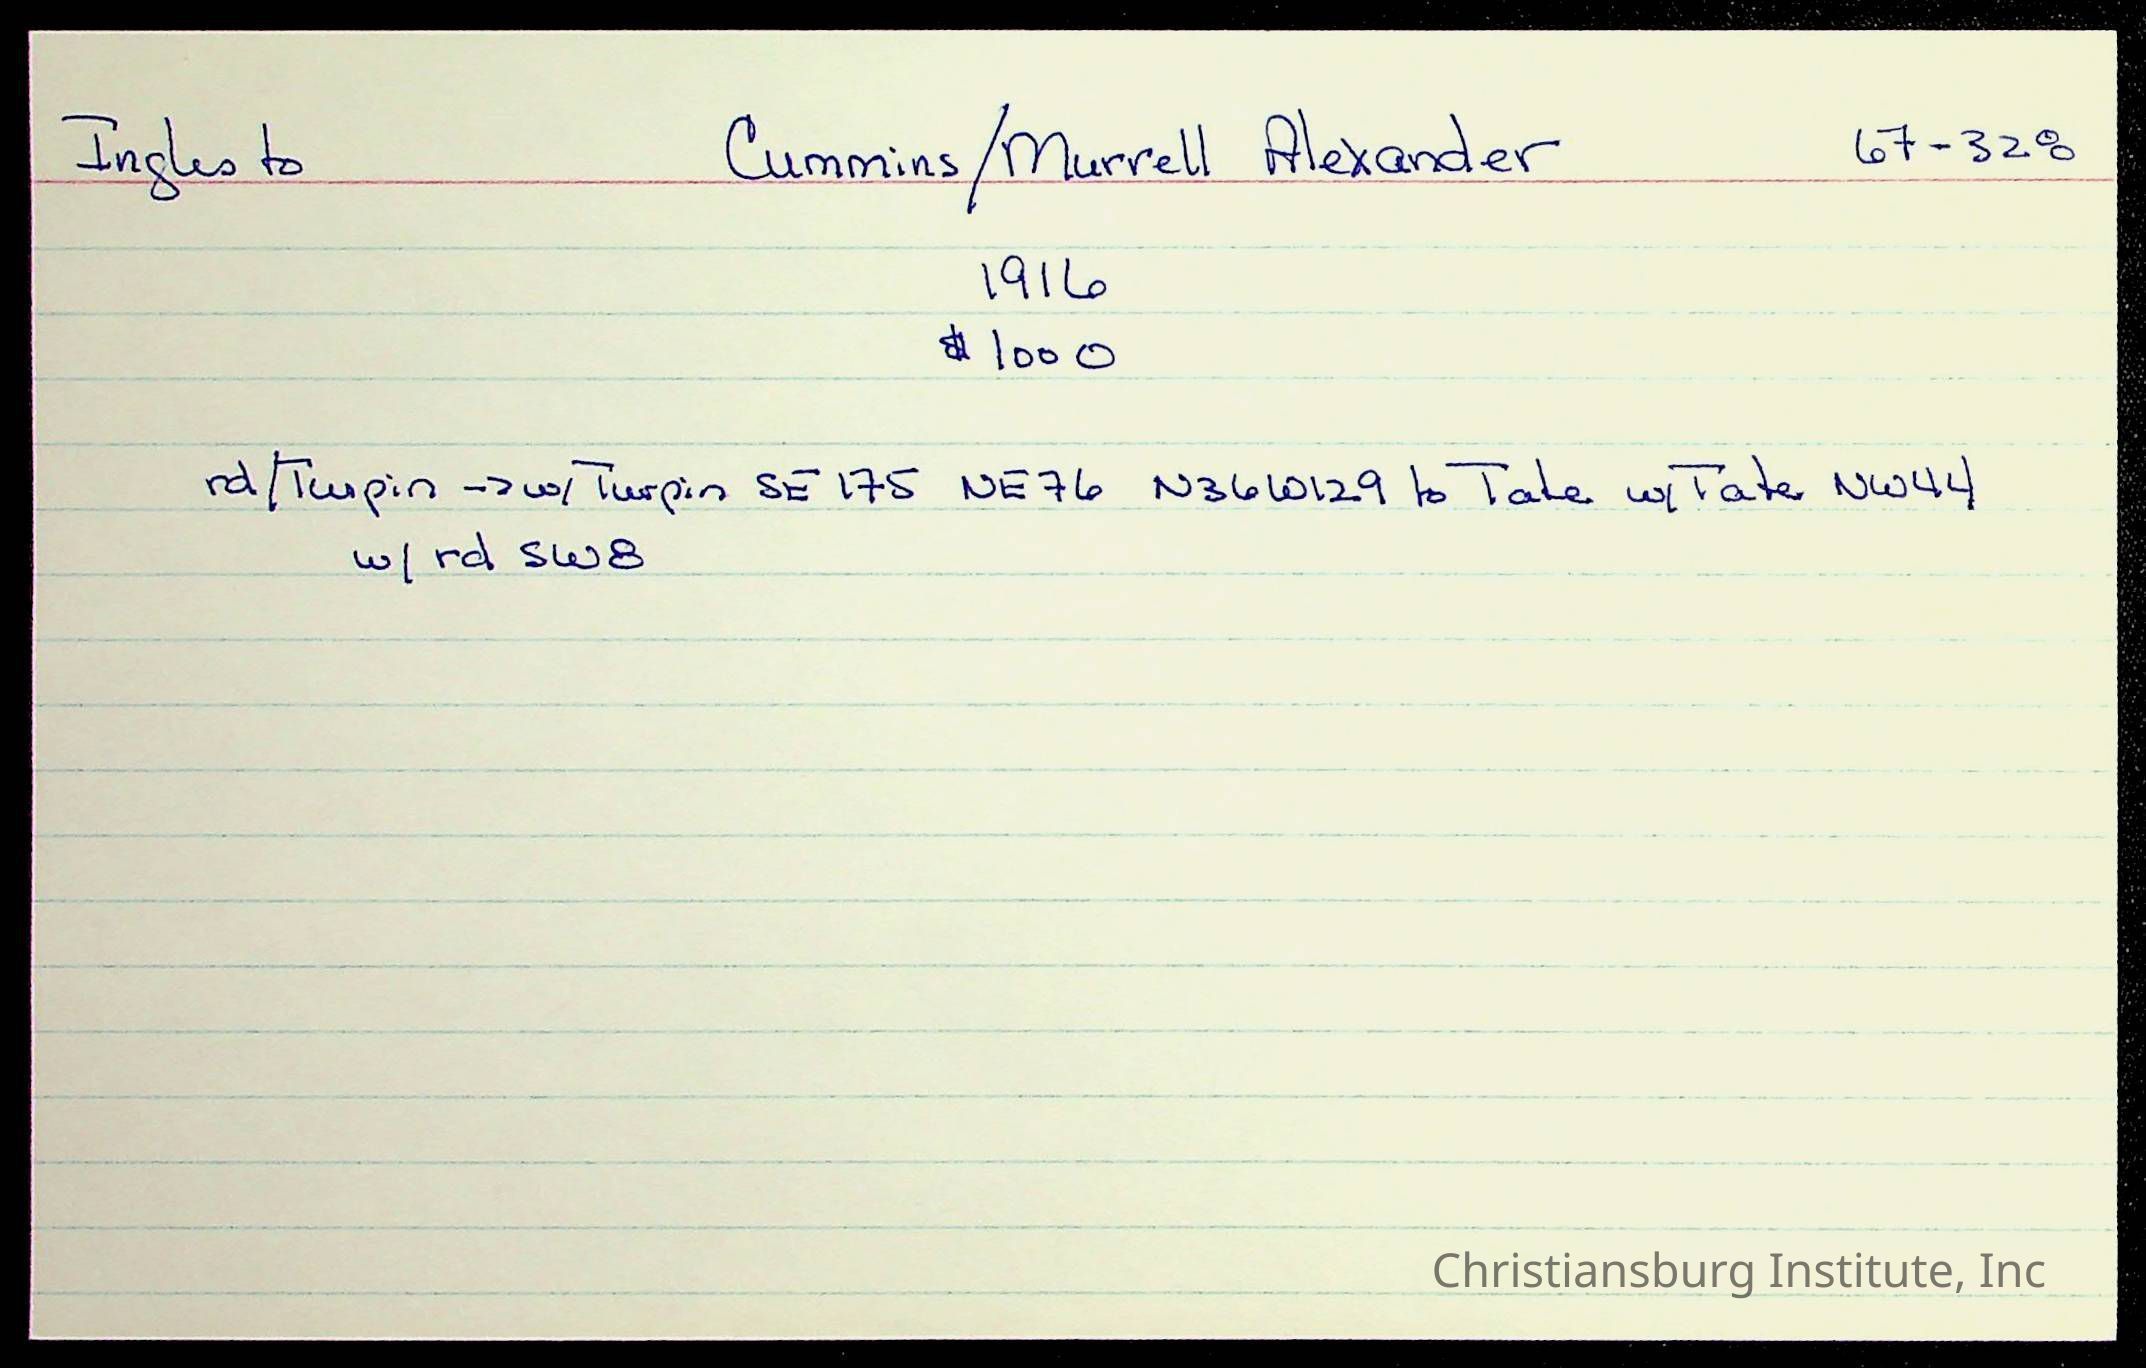 Ingles to Cummins/Murrell Alexander 67-328
1916
$1000
rd/Turpin -> w/Turpin SE175 NE76 N36W129 to Tate w/Tate NW44
w/ rd SW8
Christiansburg Institute, Inc